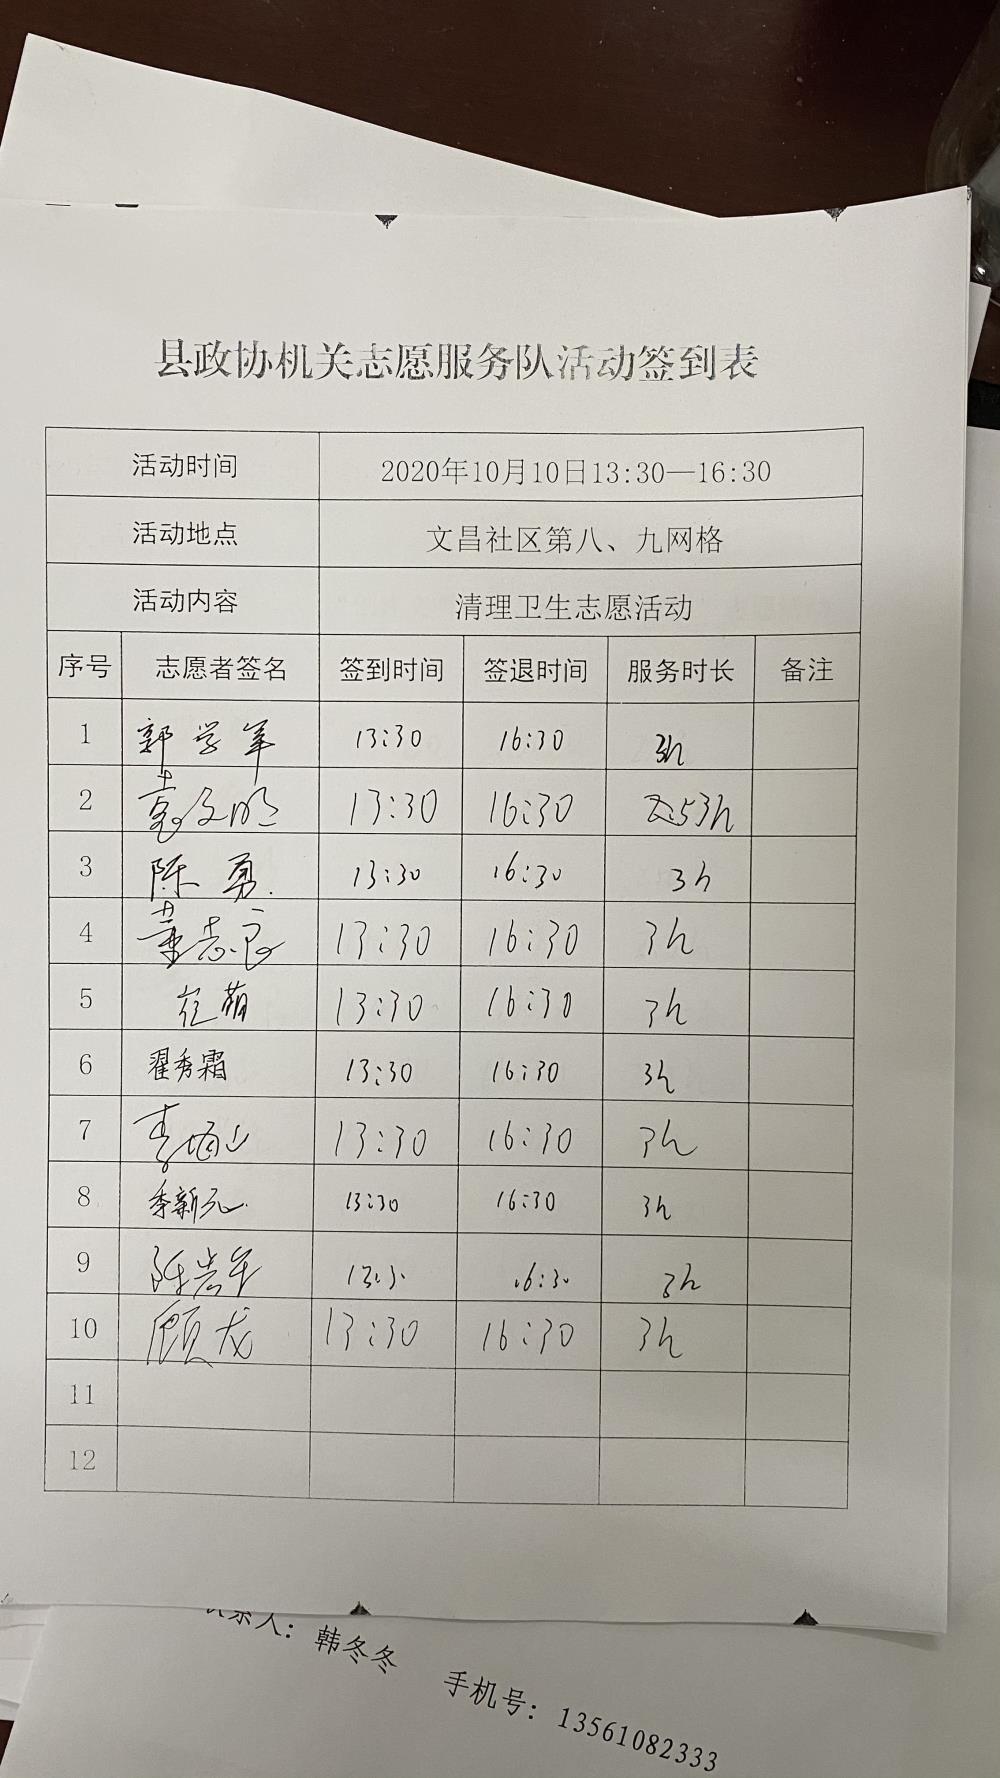 县政协机关志愿服务队活动签到表
活动时间 2020年10月10日13:30—16:30
活动地点 文昌社区第八、九网格
活动内容 清理卫生志愿活动
序号 志愿者签名 签到时间 签退时间 服务时长 备注
1 郭学军 13:30 16:30 3h
2 袁文明 13:30 16:30 3h
3 陈勇 13:30 16:30 3h
4 董志良 13:30 16:30 3h
5 崔萌 13:30 16:30 3h
6 翟秀霜 13:30 16:30 3h
7 13:30 16:30 3h
8 季新元 13:30 16:30 3h
9 陈岩军 13:30 16:30 3h
10 顾龙 13:30 16:30 3h
11
12
联系人：韩冬冬 手机号：13561082333